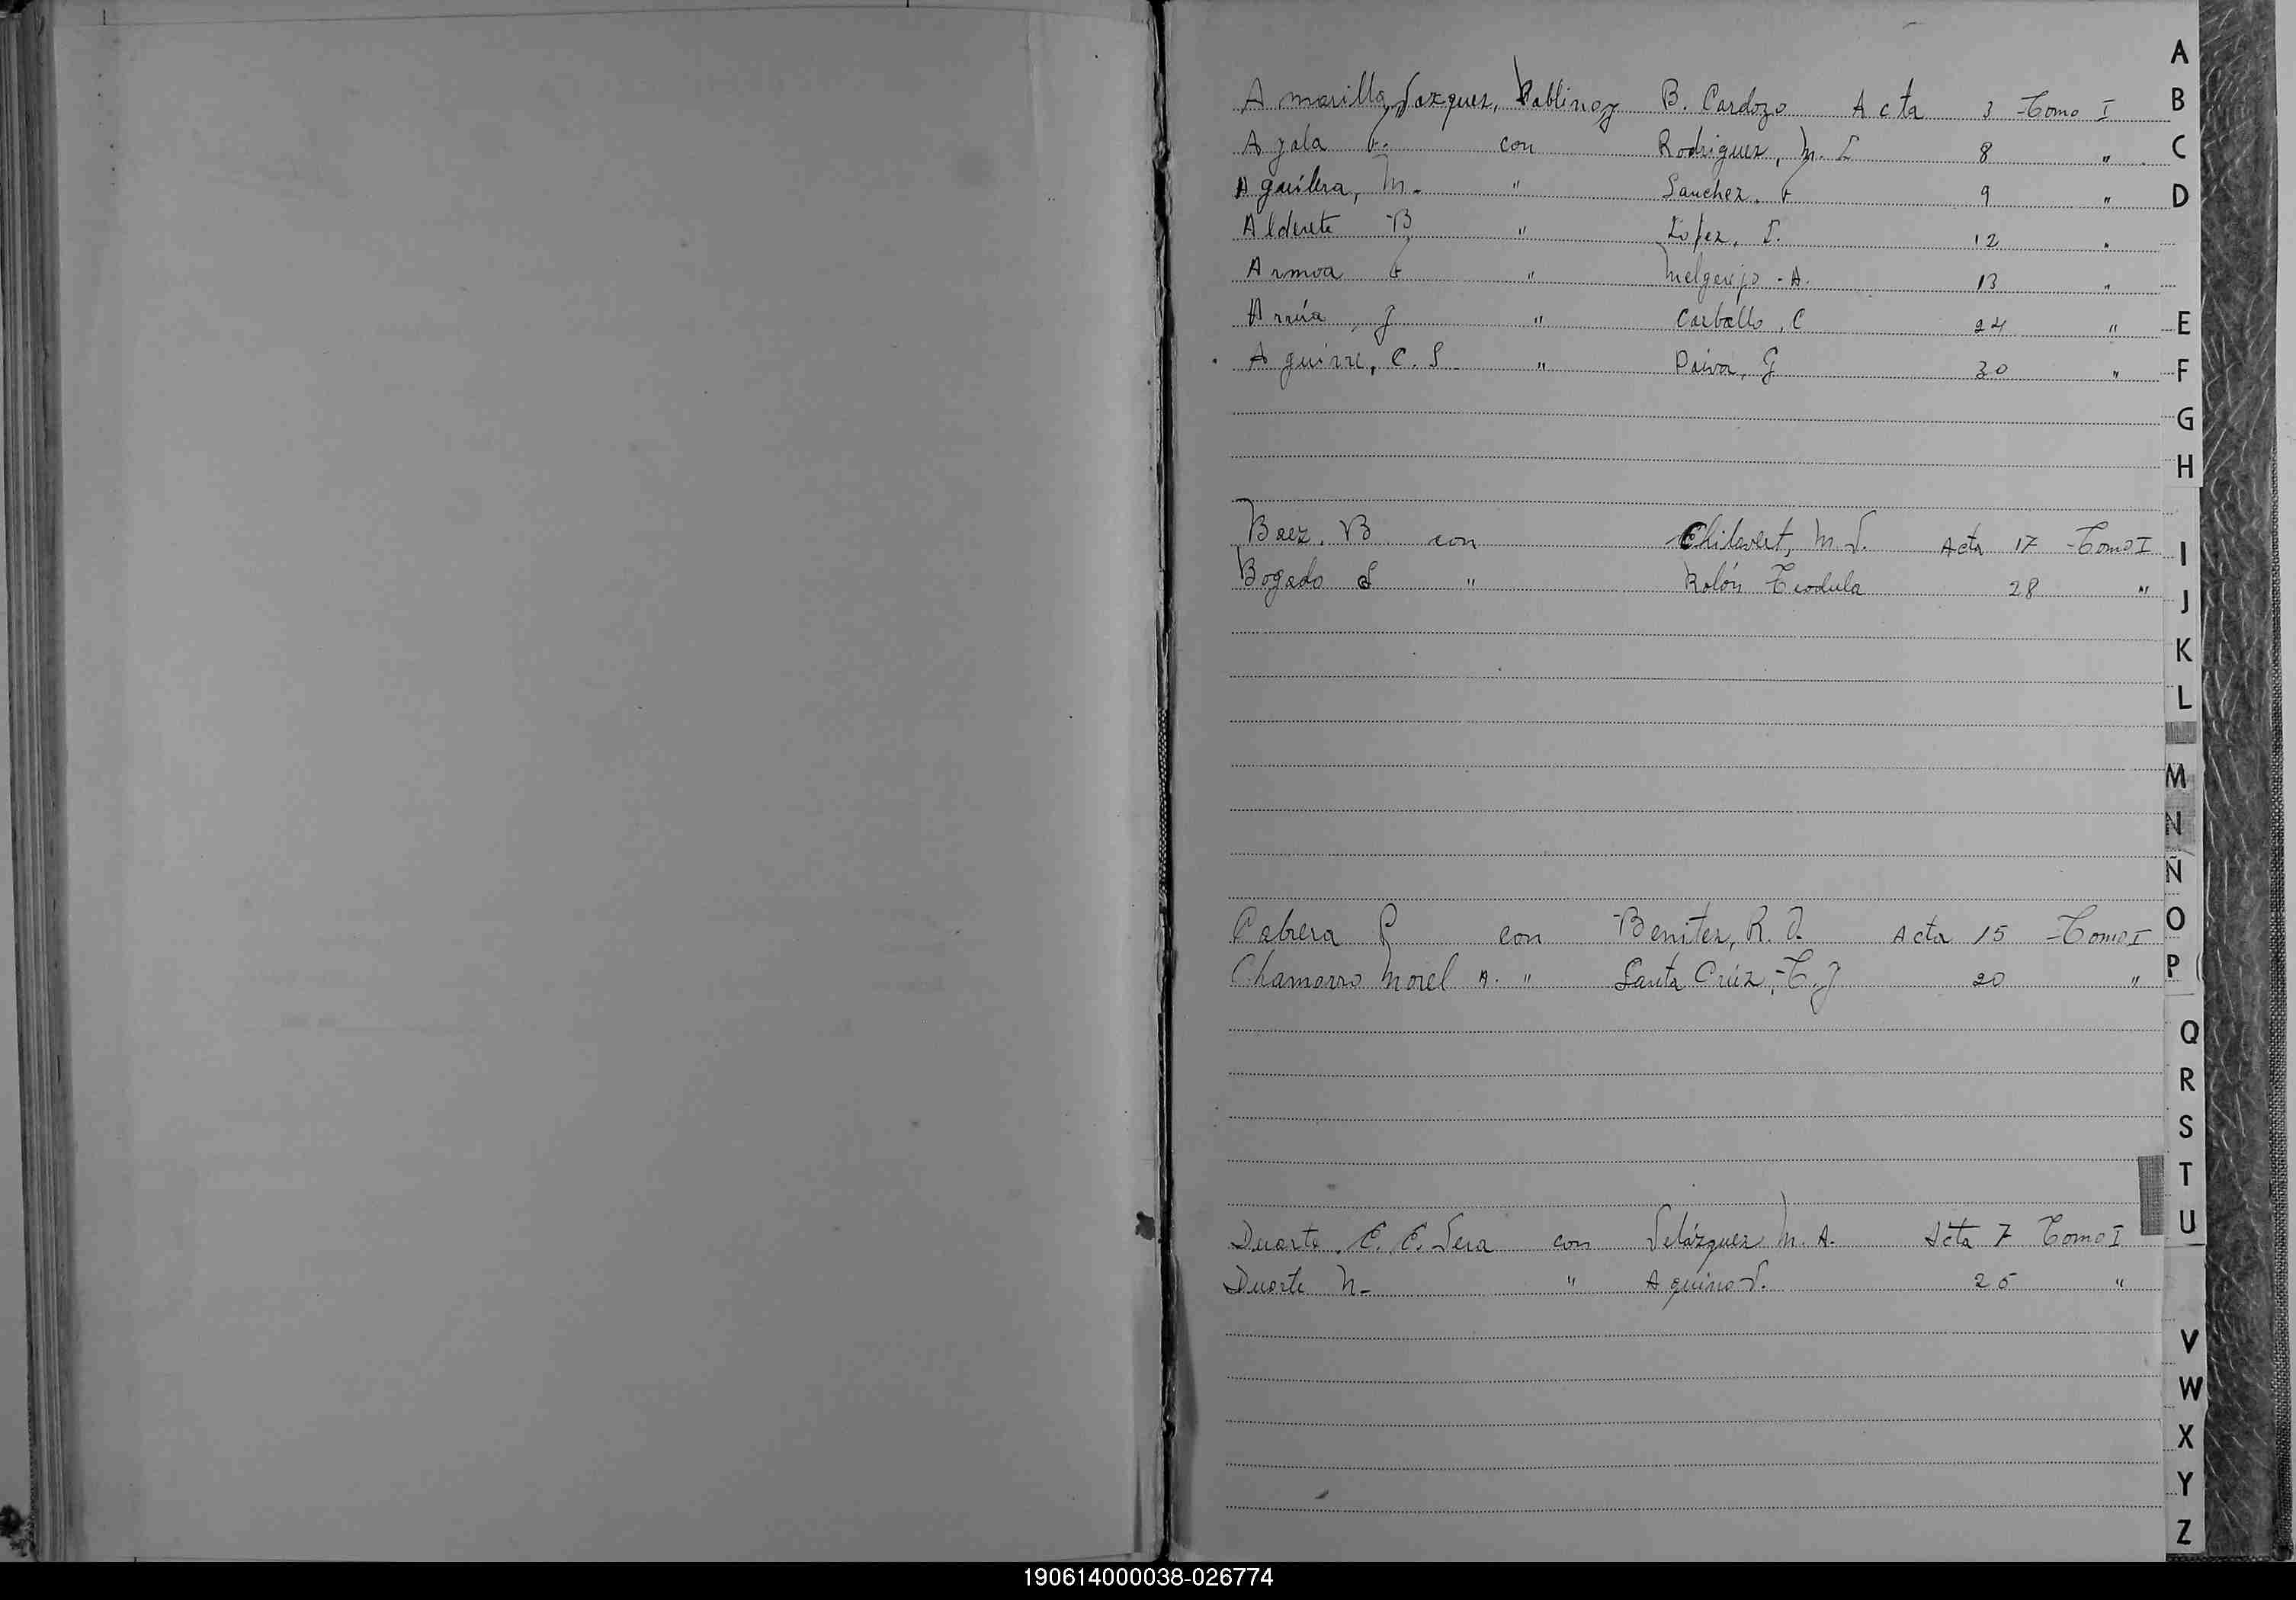 Amarilla Vazquez, Pablino y B. Cardozo Acta 3 Tomo I
Ayala F. con Rodriguez, M. L 8 "
Aguilera, M. " Sanchez, F 9 "
Alderete B " Lopez, I. 12 "
Armoa F " Melgarejo - A. 13 "
Arrúa, J " Carballo, C 24 "
Aguirre, C. S " Paiva, G 30 "
Baez, B con Chilavert, M. V. Acta 17 Tomo I
Bogado S " Rolón Teodula 28 "
Cabrera P con Benitez, R. D. Acta 15 Tomo I
Chamorro Morel A. " Santa Crúz, T. J 20 "
Duarte, E. E. Vera con Velázquez M. A. Acta 7 Tomo I
Duarte N. " Aquino V. 25 "
A
B
C
D
E
F
G
H
I
J
K
L
M
N
Ñ
O
P
Q
R
S
T
U
V
W
X
Y
Z
190614000038-026774